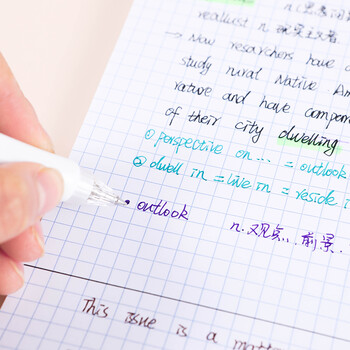 n.
reallust n. 现实主义者
→ Now researchers have
study rural Native Am
rature and have compar
of their city dwelling
① perspective on ... = outlook
② dwell in = live in = reside i
• outlook n. 观点. 前景.
This issue is a matte